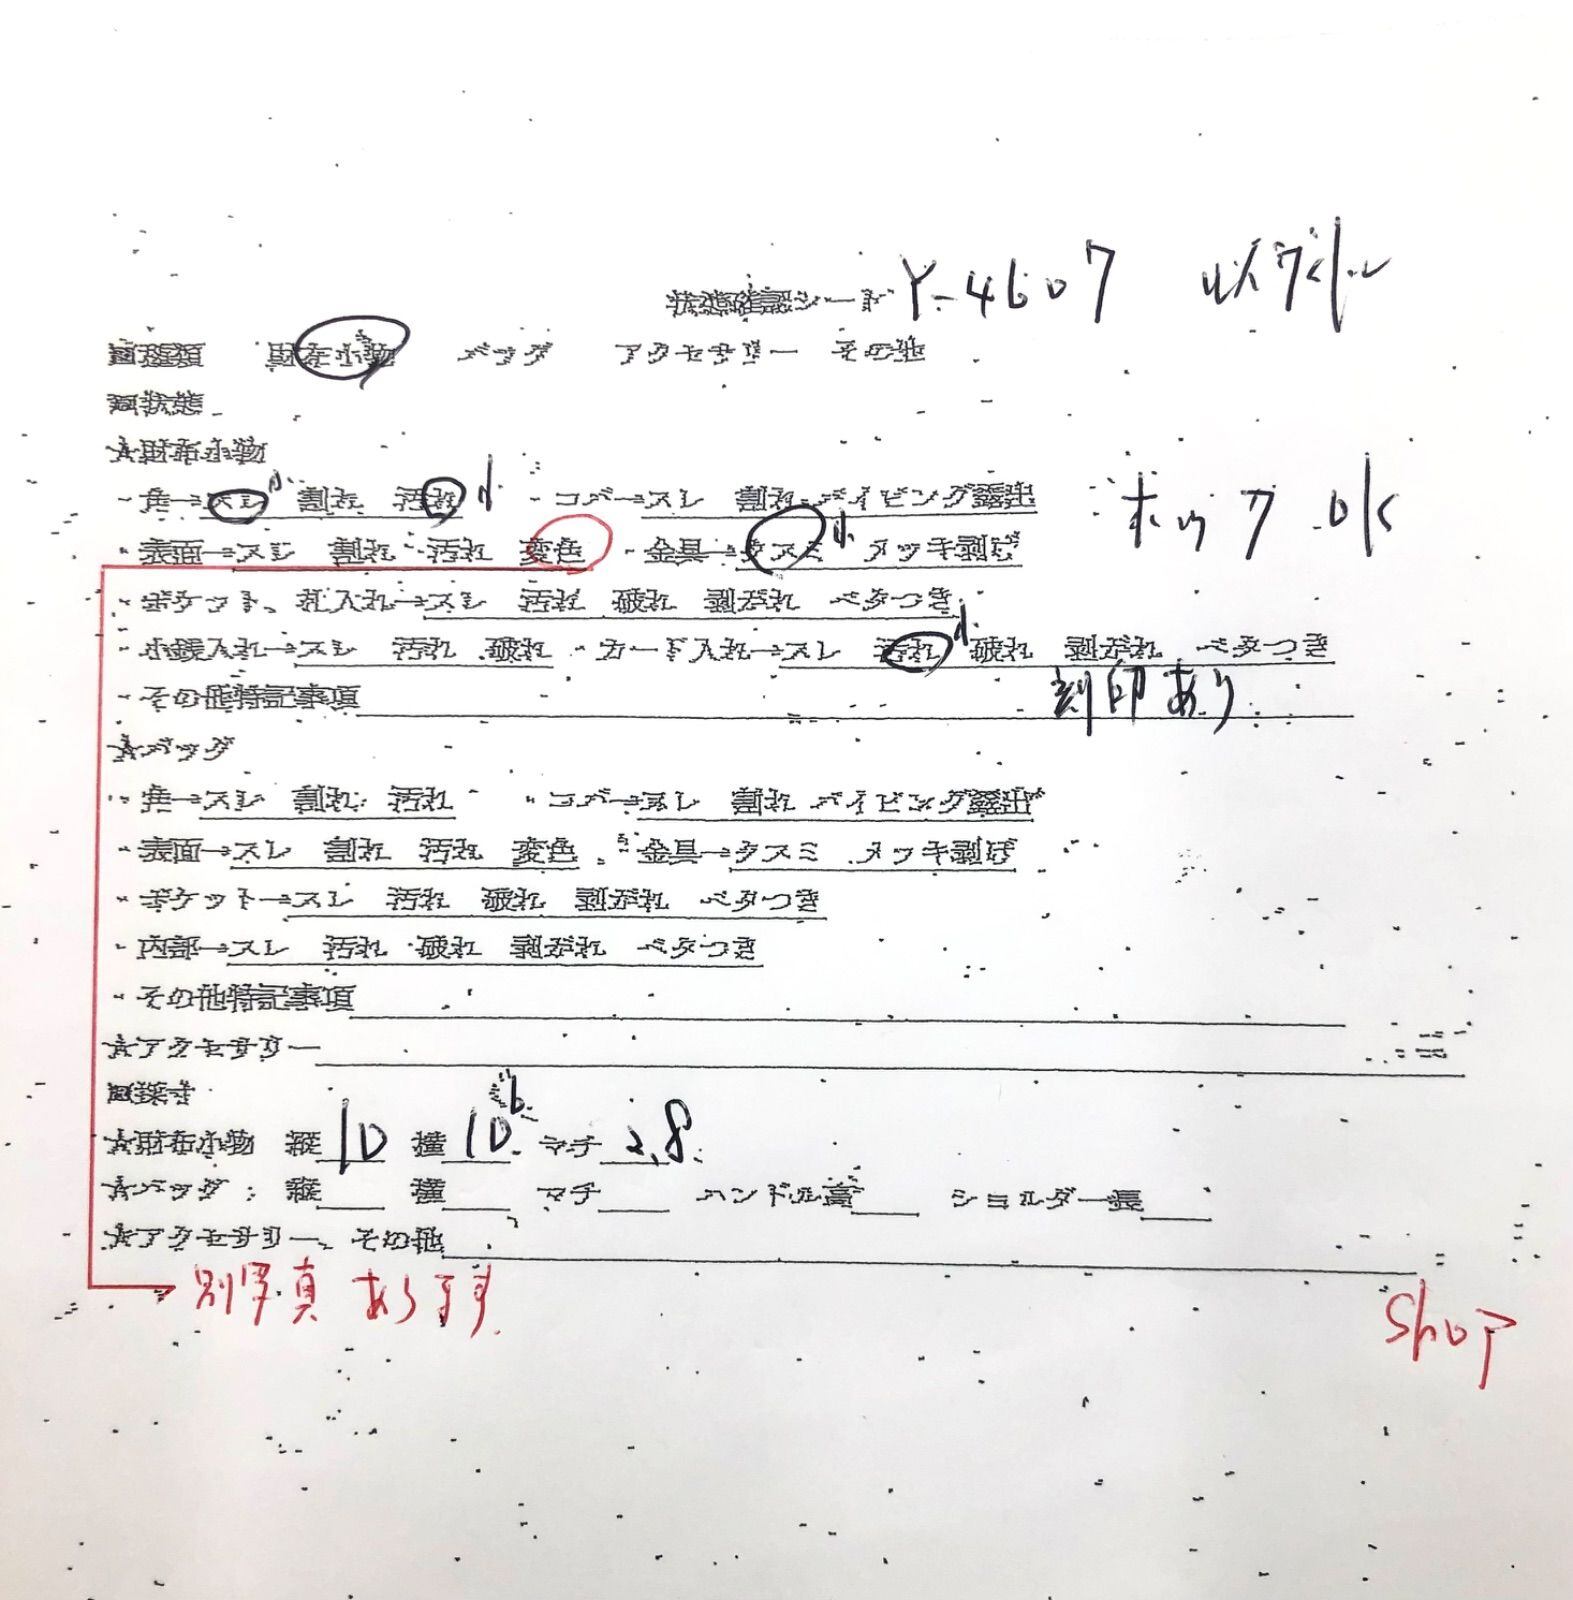 状態確認シート Y-4607
□種類 財布小物 バッグ アクセサリー その他
□状態
☆財布小物
・角→スレ 小 割れ 汚れ 小 ・コバ→スレ 割れ パイピング露出
ホック OK
・表面→スレ 割れ 汚れ 変色 ・金具→クスミ 小 メッキ剥げ
・ポケット、札入れ→スレ 汚れ 破れ 剥がれ ベタつき
・小銭入れ→スレ 汚れ 破れ ・カード入れ→スレ 汚れ 小 破れ 剥がれ ベタつき
・その他特記事項 刻印あり
☆バッグ
・角→スレ 割れ 汚れ ・コバ→スレ 割れ パイピング露出
・表面→スレ 割れ 汚れ 変色 ・金具→クスミ メッキ剥げ
・ポケット→スレ 汚れ 破れ 剥がれ ベタつき
・内部→スレ 汚れ 破れ 剥がれ ベタつき
・その他特記事項
☆アクセサリー
□採寸
☆財布小物 縦 10 横 10 マチ 2.8
☆バッグ 縦 横 マチ ハンドル高 ショルダー長
☆アクセサリー、その他
別写真あります
SHOP